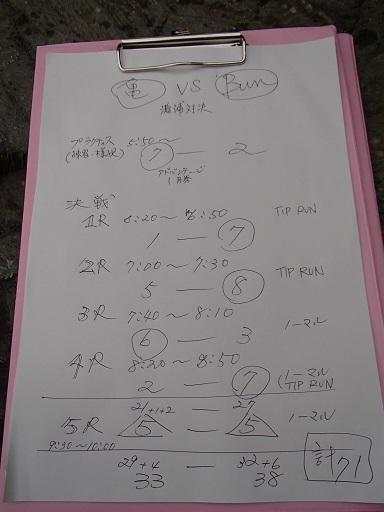 亀 VS Bun
対決
プラクティス 5:50〜
(練習・様子見) 7 — 2
アドバンテージ
1勝
決戦
1R 6:20〜6:50 TIP RUN
1 — 7
2R 7:00〜7:30 TIP RUN
5 — 8
3R 7:40〜8:10 ノーマル
6 — 3
4R 8:20〜8:50
2 — 7 (ノーマル
TIP RUN
21+1+2 — 27
5R 5 — 5 ノーマル
9:30〜10:00
29+4 — 32+6 計71
33 38